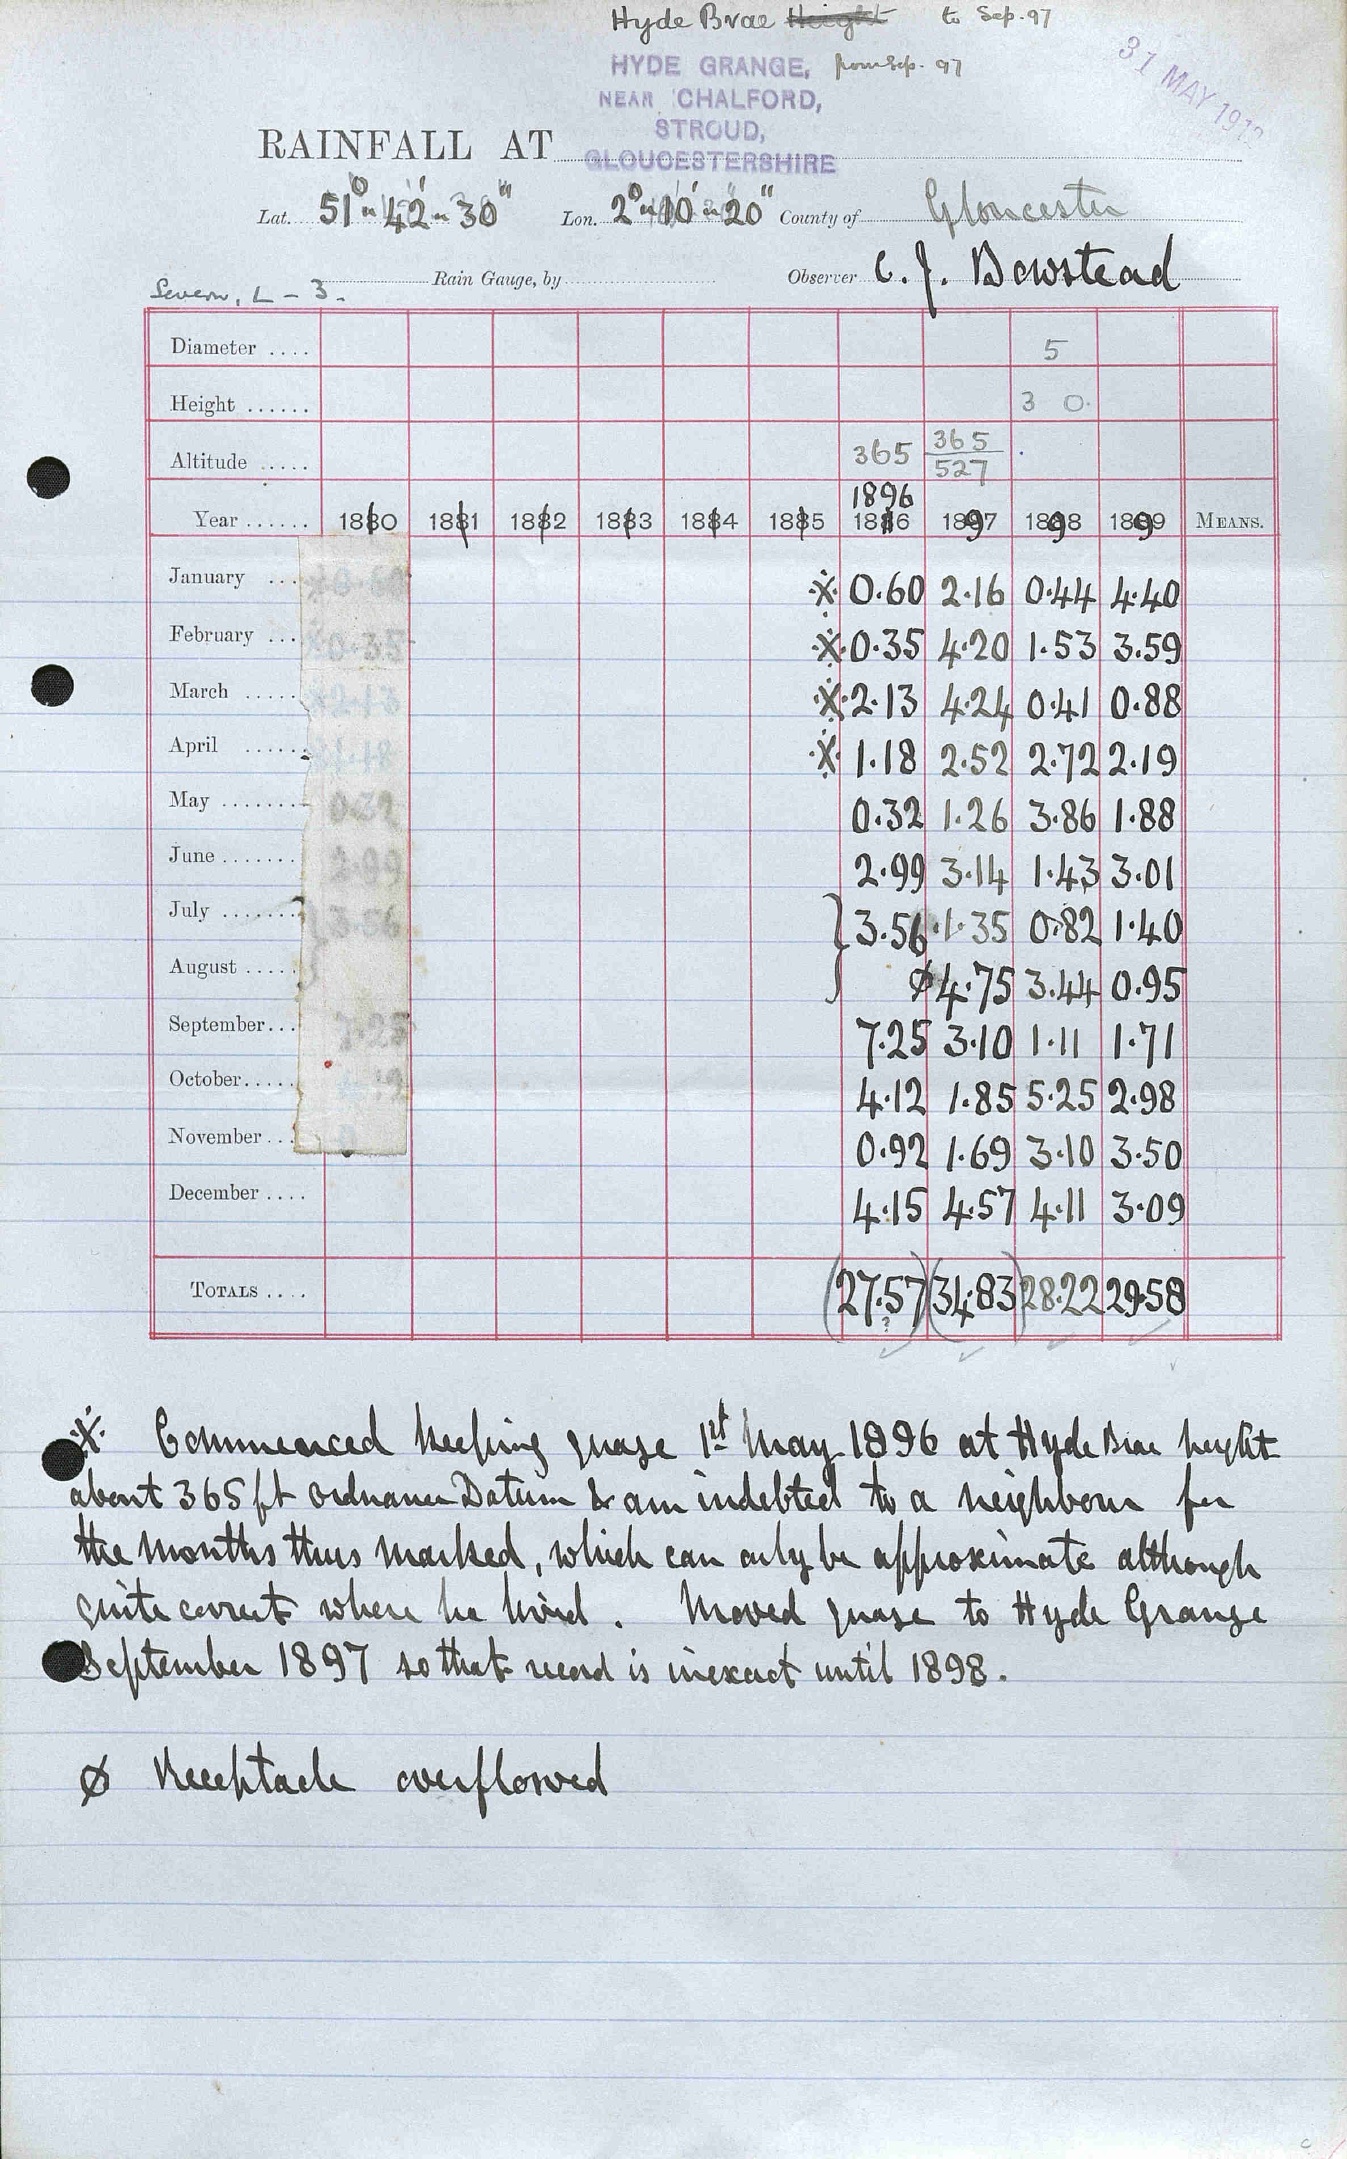 Hyde Brae Height to Sep. 97
HYDE GRANGE, from Sep. 97
NEAR CHALFORD,
STROUD,
GLOUCESTERSHIRE
31 MAY 1912
RAINFALL AT
Lat. 51° 42' 30" Lon. 2° 10' 20" County of Gloucester
Rain Gauge, by Observer C. J. Bowstead
Severn, L - 3.
Diameter .... 5
Height ...... 3 0.
Altitude ..... 365 365/527
1896
Year ...... 1880 1881 1882 1883 1884 1885 1886 1897 1898 1899 MEANS.
January ... ※ 0.60 2.16 0.44 4.40
February ... ※ 0.35 4.20 1.53 3.59
March ..... ※ 2.13 4.24 0.41 0.88
April ...... ※ 1.18 2.52 2.72 2.19
May ........ 0.32 1.26 3.86 1.88
June ....... 2.99 3.14 1.43 3.01
July ....... } 3.56 1.35 0.82 1.40
August ..... ø 4.75 3.44 0.95
September... 7.25 3.10 1.11 1.71
October..... 4.12 1.85 5.25 2.98
November ... 0.92 1.69 3.10 3.50
December .... 4.15 4.57 4.11 3.09
TOTALS .... (27.57) (34.83) 28.22 29.58
?
※ Commenced keeping guage 1st May 1896 at Hyde Brae height
about 365 ft ordnance Datum & am indebted to a neighbour for
the months thus marked, which can only be approximate although
quite correct where he lived. Moved guage to Hyde Grange
September 1897 so that record is inexact until 1898.
ø Receptacle overflowed